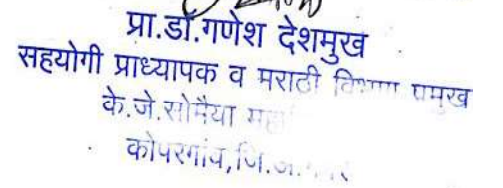 प्रा.डॉ.गणेश देशमुख
सहयोगी प्राध्यापक व मराठी विभाग प्रमुख
के.जे.सोमैया
कोपरगांव,जि.